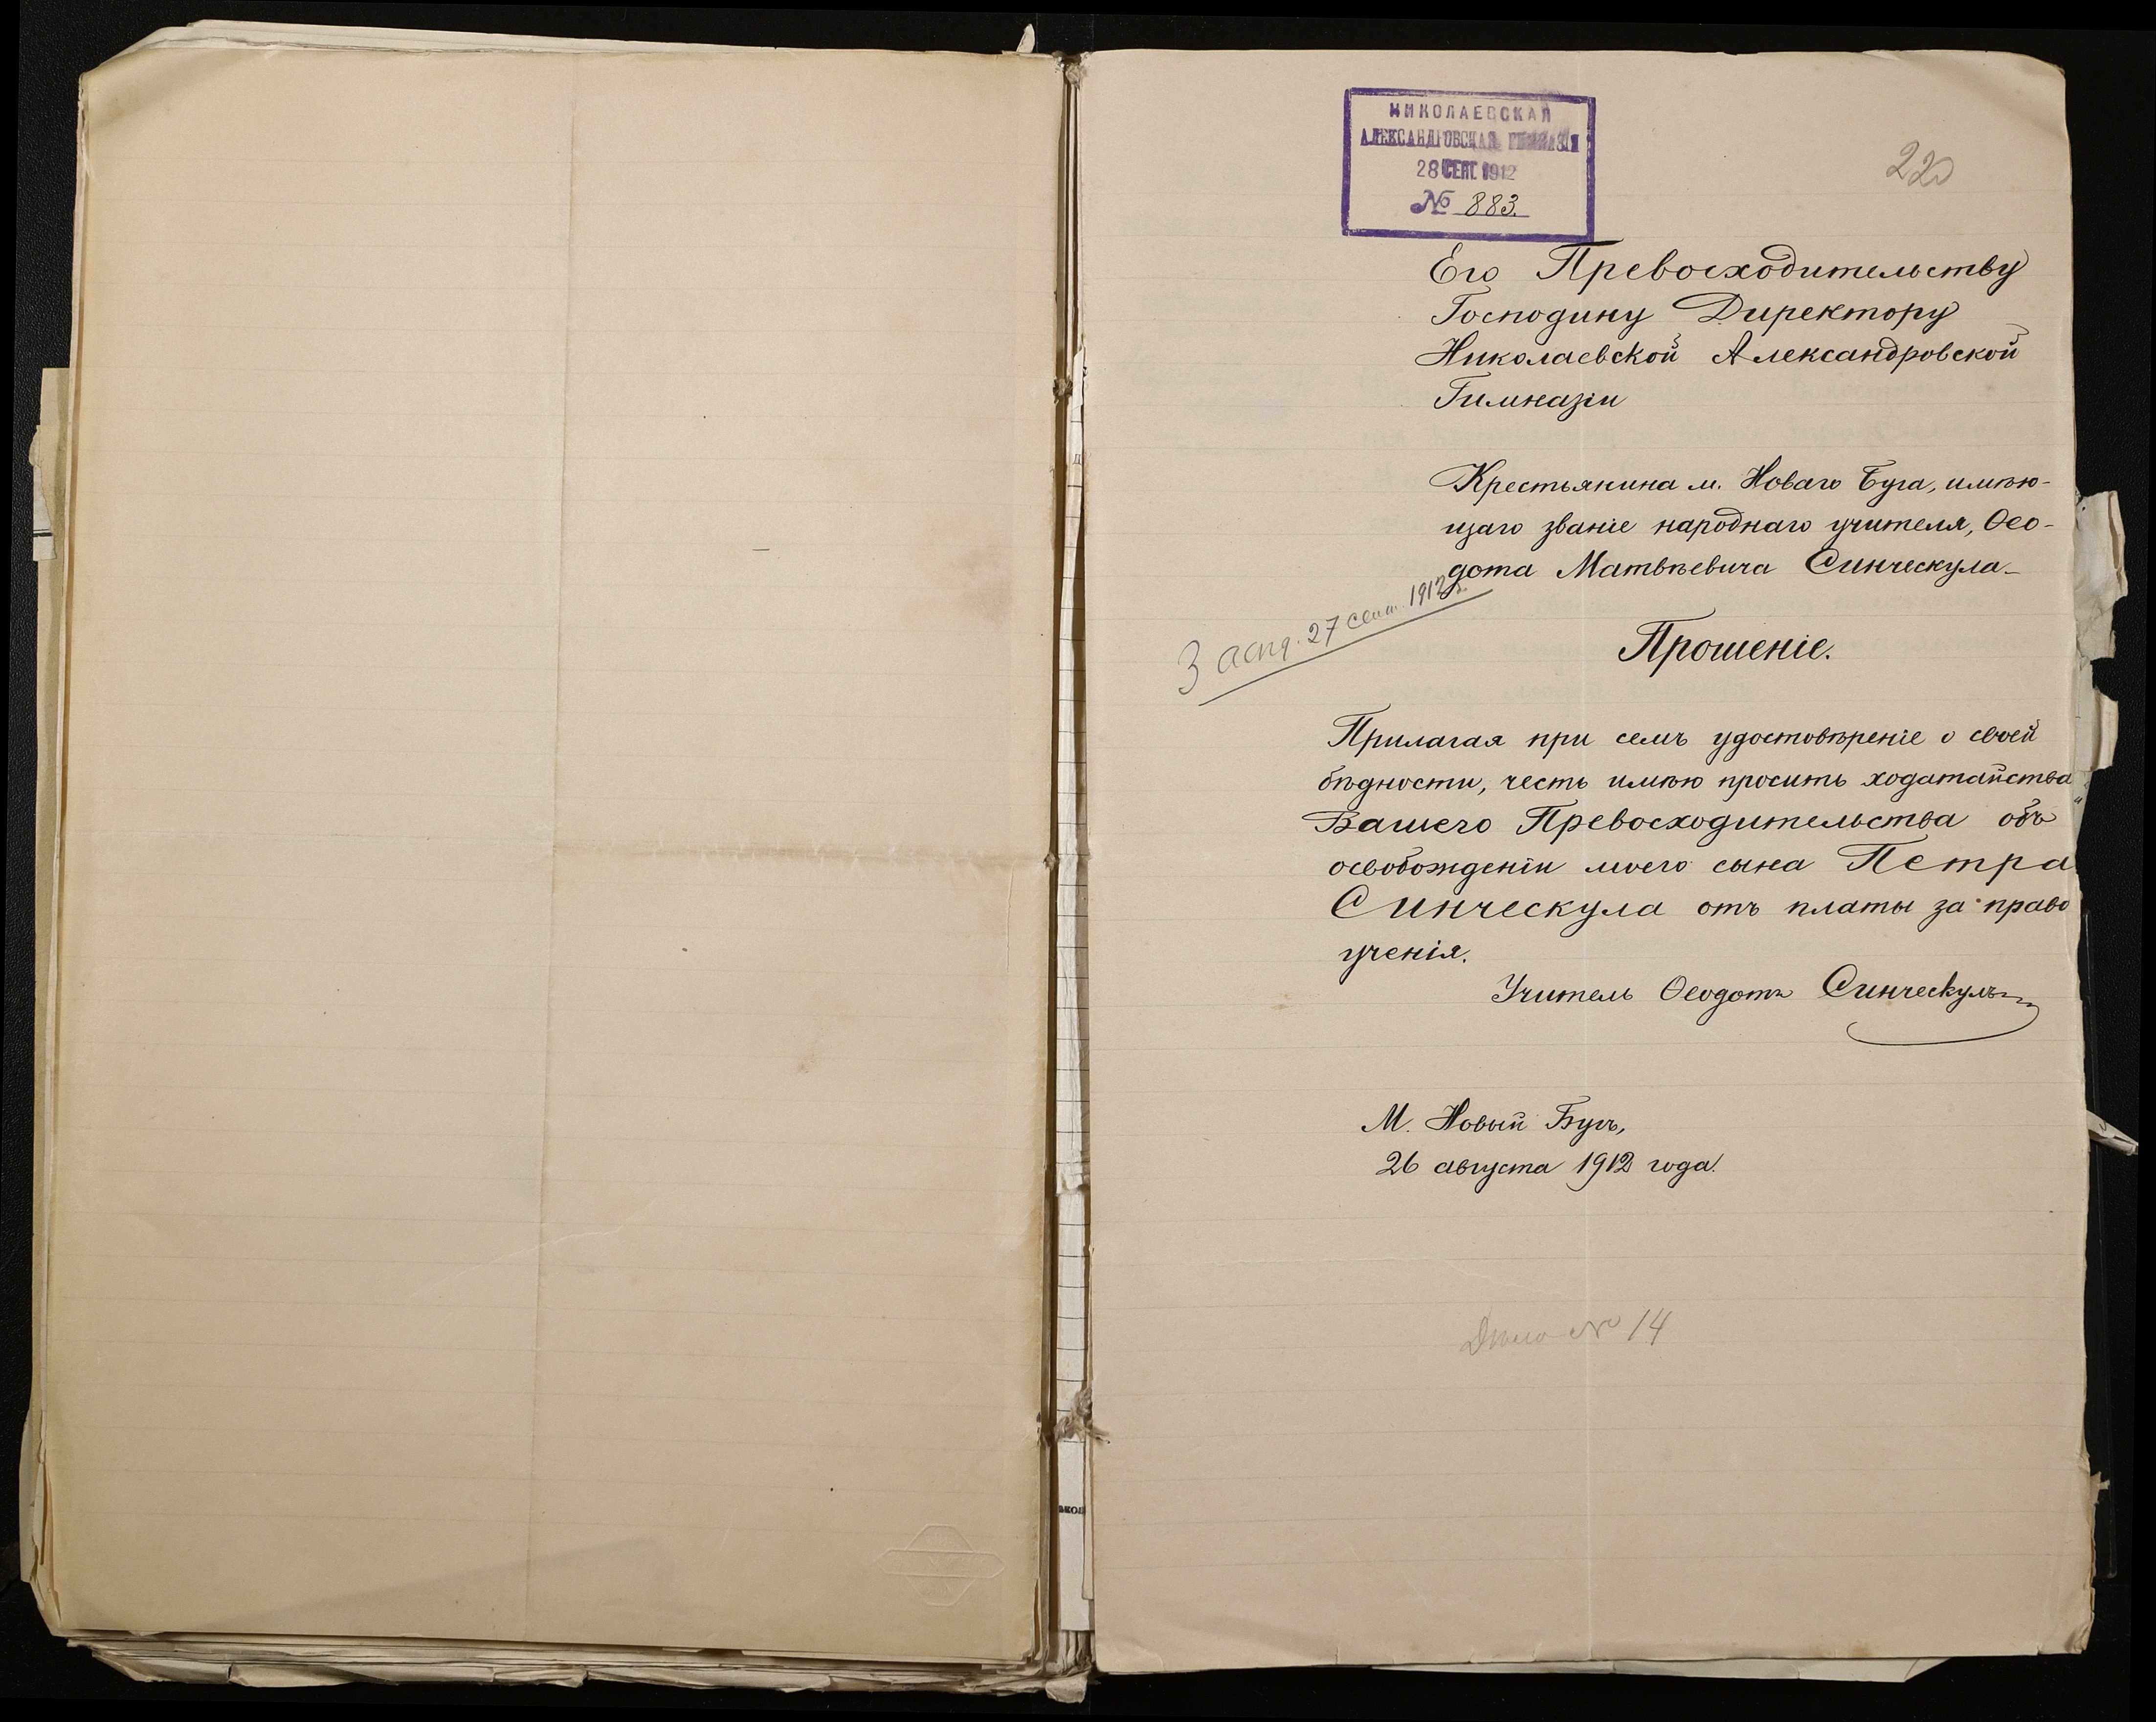 НИКОЛАЕВСКАЯ
АЛЕКСАНДРОВСКАЯ ГИМНАЗІЯ
28 СЕНТ. 1912
№ 883.
220
Его Превосходительству
Господину Директору
Николаевской Александровской
Гимназіи
Крестьянина м. Новаго Буга, имѣю-
щаго званіе народнаго учителя, Ѳео-
дота Матвѣевича Синческула
27 сент. 1912
Прошеніе.
Прилагая при семъ удостовѣреніе о своей
бѣдности, честь имѣю просить ходатайства
Вашего Превосходительства объ
освобожденіи моего сына Петра
Синческула отъ платы за право
ученія.
Учитель Ѳеодотъ Синческулъ
М. Новый Бугъ,
26 августа 1912 года.
Дѣло № 14